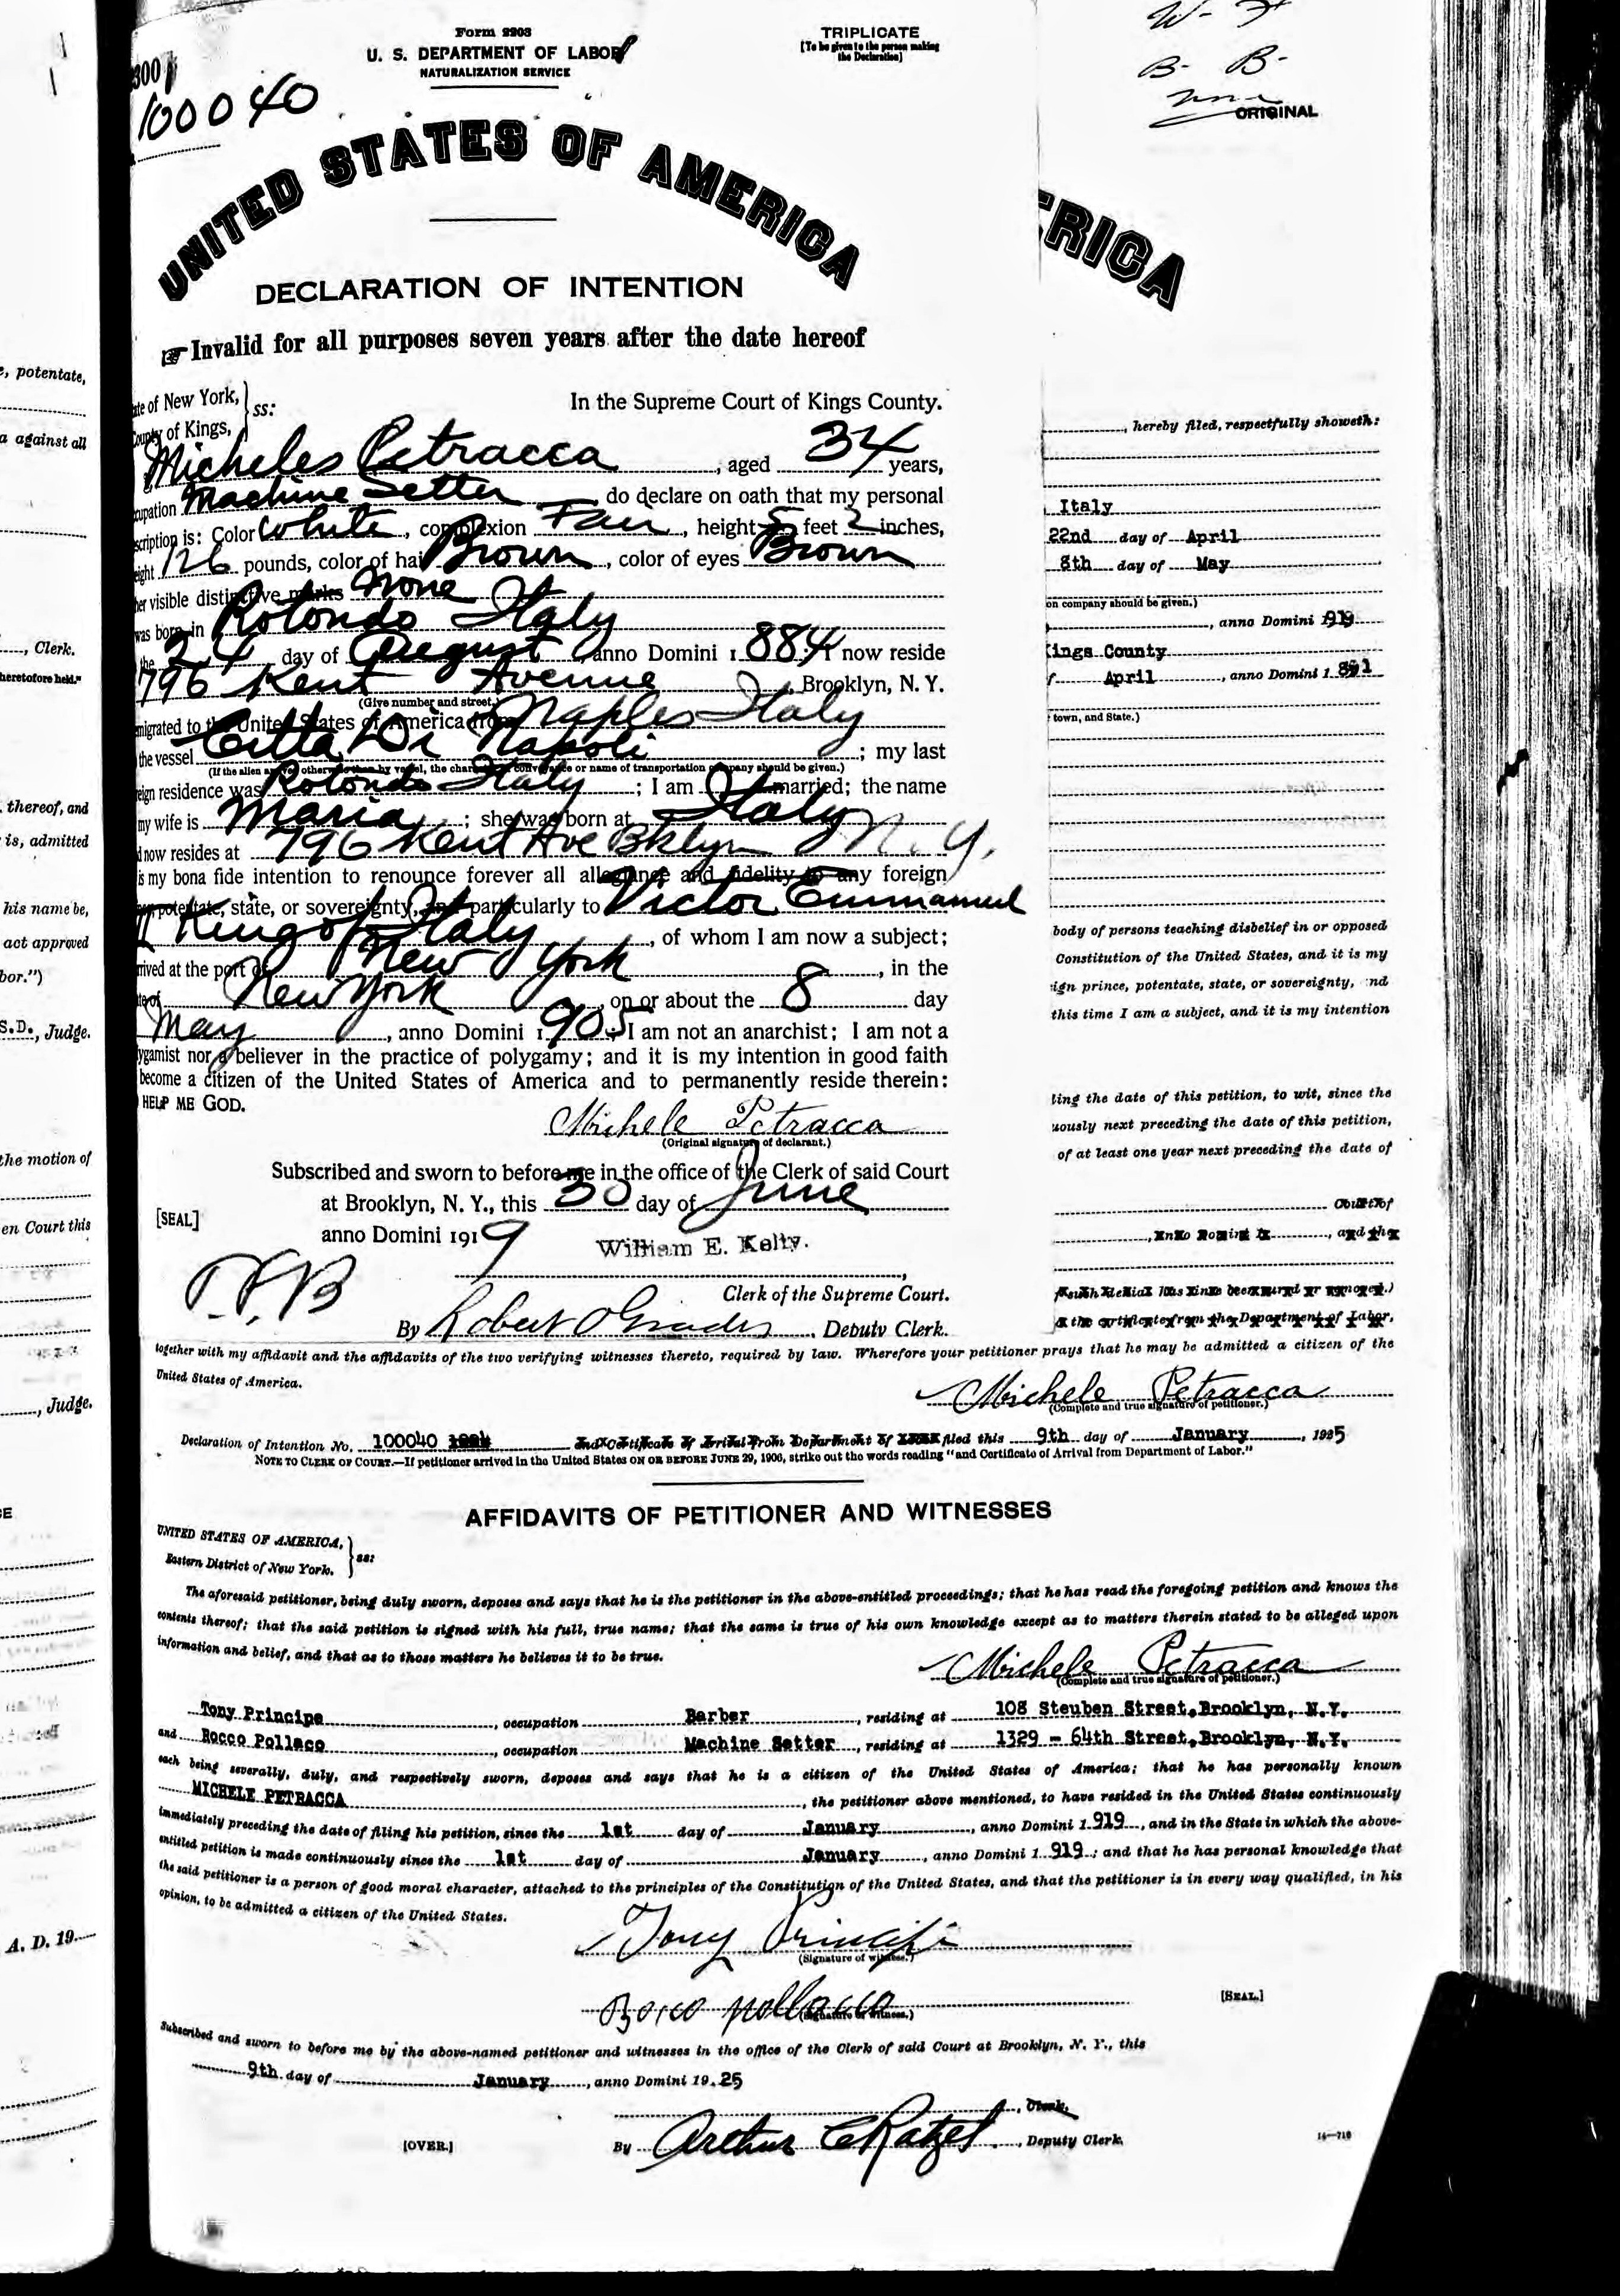 Form 2203
U. S. DEPARTMENT OF LABOR
NATURALIZATION SERVICE
TRIPLICATE
[To be given to the person making
the Declaration]
300
100040
UNITED STATES OF AMERICA
DECLARATION OF INTENTION
Invalid for all purposes seven years after the date hereof
ate of New York,
County of Kings, ss:
In the Supreme Court of Kings County.
Micheles Petracca, aged 34 years,
upation Machine Setter do declare on oath that my personal
scription is: Color White, complexion Fair, height 5 feet 2 inches,
eight 126 pounds, color of hair Brown, color of eyes Brown
her visible distinctive marks None
was born in Rotondo Italy
the 24 day of August anno Domini 1884; I now reside
796 Kent Avenue, Brooklyn, N. Y.
(Give number and street.)
migrated to the United States of America from Naples Italy
the vessel Citta Di Napoli; my last
(If the alien arrived otherwise than by vessel, the character of conveyance or name of transportation company should be given.)
eign residence was Rotondo Italy; I am married; the name
my wife is Maria; she was born at Italy
d now resides at 796 Kent Ave Bklyn N. Y.
is my bona fide intention to renounce forever all allegiance and fidelity to any foreign
potentate, state, or sovereignty, and particularly to Victor Emmanuel
King of Italy, of whom I am now a subject;
rived at the port of New York, in the
te of New York, on or about the 8 day
May, anno Domini 1905; I am not an anarchist; I am not a
ygamist nor a believer in the practice of polygamy; and it is my intention in good faith
become a citizen of the United States of America and to permanently reside therein:
HELP ME GOD.
Michele Petracca
(Original signature of declarant.)
Subscribed and sworn to before me in the office of the Clerk of said Court
at Brooklyn, N. Y., this 30 day of June
[SEAL]
anno Domini 1919
William E. Kelly.
Clerk of the Supreme Court.
By Robert, Deputy Clerk.
ORIGINAL
ERICA
, hereby filed, respectfully showeth:
Italy
22nd day of April
8th day of May
on company should be given.)
, anno Domini 1919
Kings County
April, anno Domini 1.891
town, and State.)
body of persons teaching disbelief in or opposed
Constitution of the United States, and it is my
ign prince, potentate, state, or sovereignty, and
this time I am a subject, and it is my intention
ling the date of this petition, to wit, since the
uously next preceding the date of this petition,
of at least one year next preceding the date of
Court of
together with my affidavit and the affidavits of the two verifying witnesses thereto, required by law. Wherefore your petitioner prays that he may be admitted a citizen of the
United States of America.
Michele Petracca
(Complete and true signature of petitioner.)
Declaration of Intention No. 100040 and Certificate of Arrival from Department of filed this 9th day of January, 1925
NOTE TO CLERK OF COURT.—If petitioner arrived in the United States ON OR BEFORE JUNE 29, 1906, strike out the words reading "and Certificate of Arrival from Department of Labor."
AFFIDAVITS OF PETITIONER AND WITNESSES
UNITED STATES OF AMERICA,
Eastern District of New York. ss:
The aforesaid petitioner, being duly sworn, deposes and says that he is the petitioner in the above-entitled proceedings; that he has read the foregoing petition and knows the
contents thereof; that the said petition is signed with his full, true name; that the same is true of his own knowledge except as to matters therein stated to be alleged upon
information and belief, and that as to those matters he believes it to be true.
Michele Petracca
(Complete and true signature of petitioner.)
Tony Principe, occupation Barber, residing at 108 Steuben Street, Brooklyn, N.Y.
and Rocco Pollaco, occupation Machine Setter, residing at 1329 - 64th Street, Brooklyn, N.Y.
each being severally, duly, and respectively sworn, deposes and says that he is a citizen of the United States of America; that he has personally known
MICHELE PETRACCA, the petitioner above mentioned, to have resided in the United States continuously
immediately preceding the date of filing his petition, since the 1st day of January, anno Domini 1.919, and in the State in which the above-
entitled petition is made continuously since the 1st day of January, anno Domini 1.919; and that he has personal knowledge that
the said petitioner is a person of good moral character, attached to the principles of the Constitution of the United States, and that the petitioner is in every way qualified, in his
opinion, to be admitted a citizen of the United States.
Tony Principe
(Signature of witness.)
Rocco Pollacco
(Signature of witness.)
[SEAL.]
Subscribed and sworn to before me by the above-named petitioner and witnesses in the office of the Clerk of said Court at Brooklyn, N. Y., this
9th day of January, anno Domini 19.25
, Clerk.
[OVER.]
By Arthur C Ratzel, Deputy Clerk.
14—719
e, potentate,
a against all
, Clerk.
heretofore held."
thereof, and
is, admitted
his name be,
act approved
bor.")
S.D., Judge.
the motion of
en Court this
, Judge.
A. D. 19